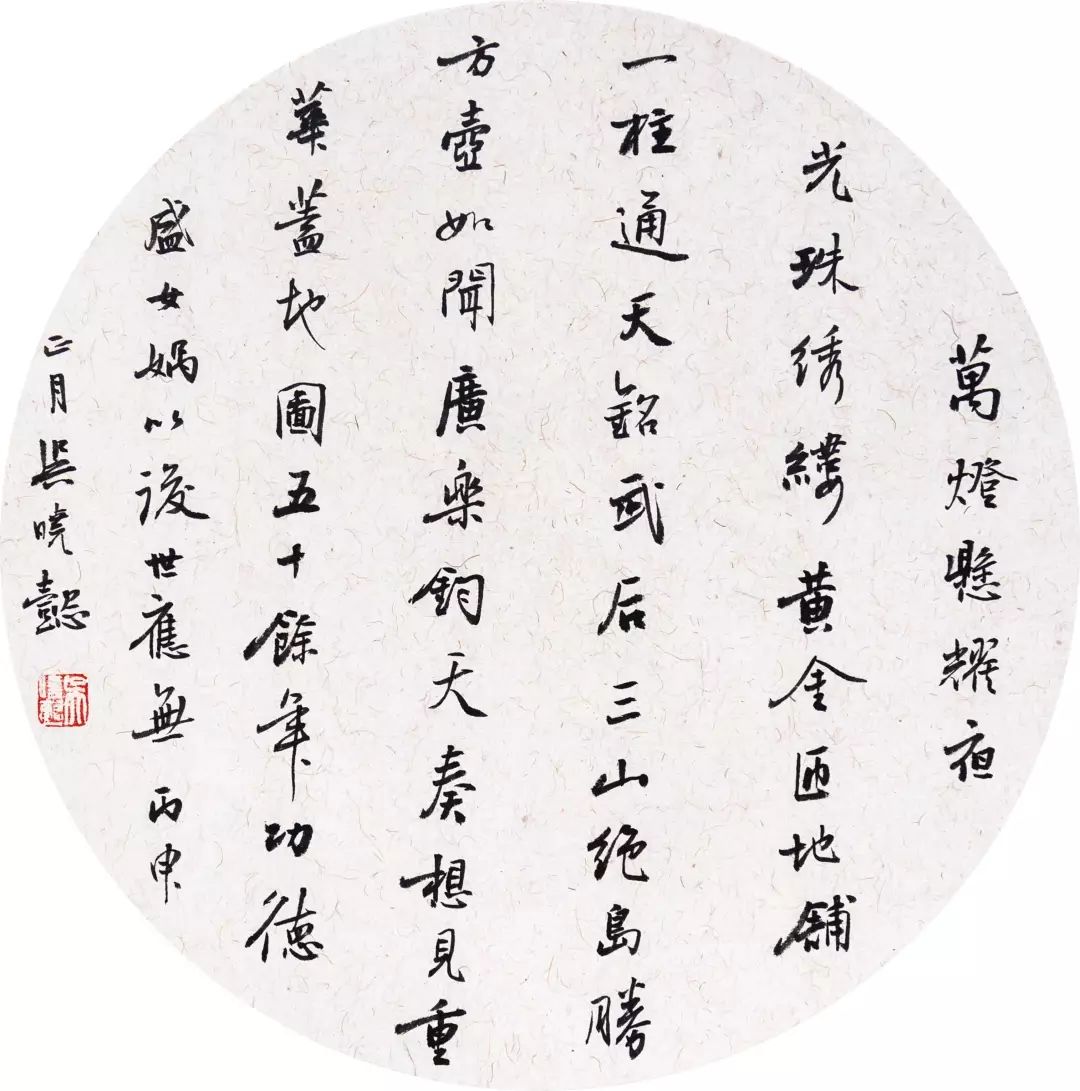 萬燈懸耀夜
光珠绣纓黄金匝地鋪
一柱通天銘武后三山絶島勝
方壺如聞廣樂鈞天奏想見重
華蓋地圖五十餘年功德
盛女媧以後世應無丙申
正月吴曉懿